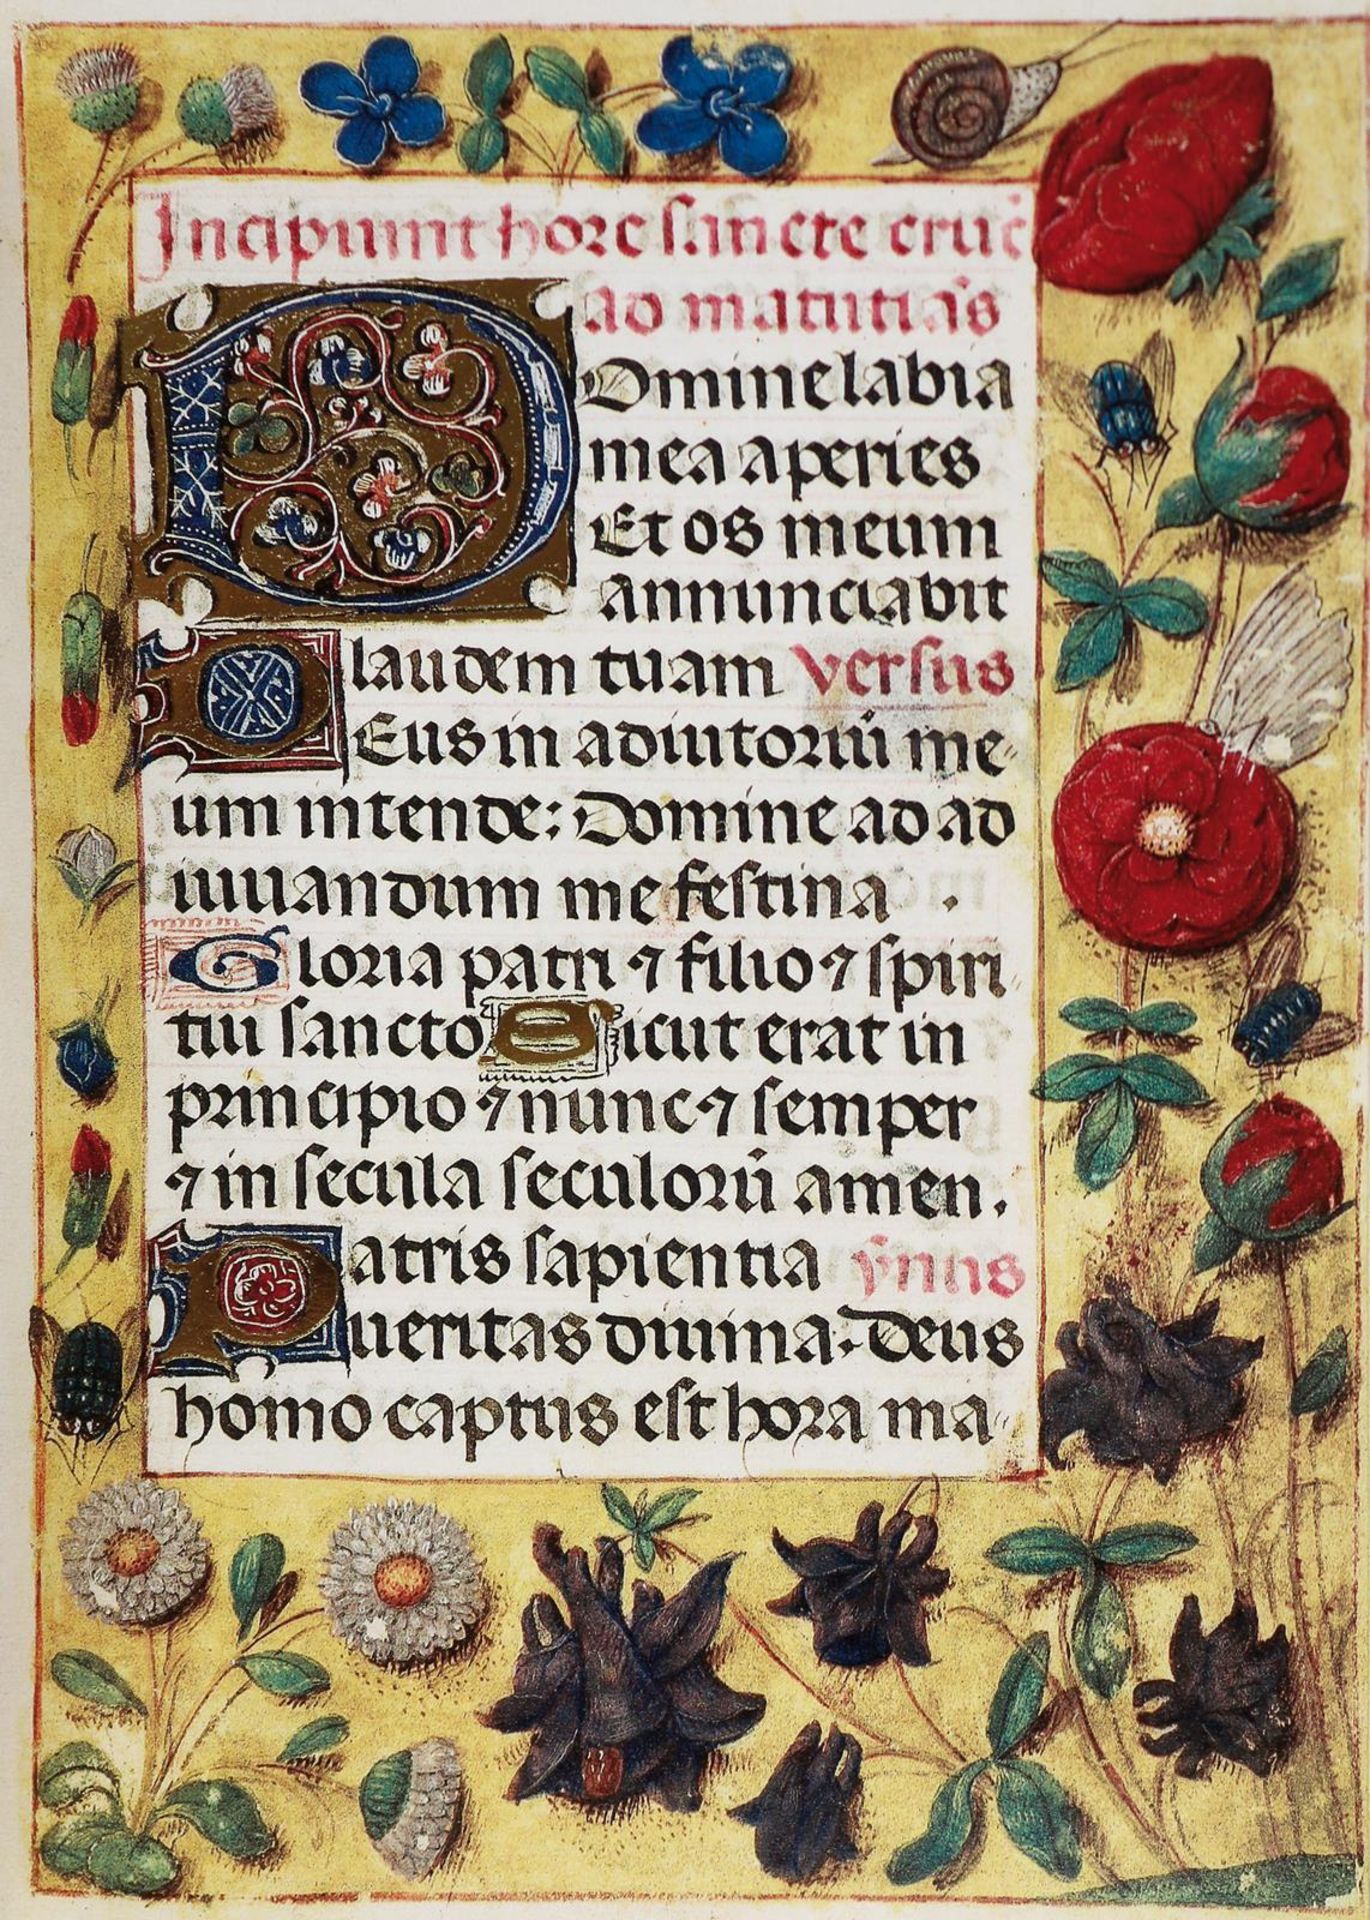 Incipiunt hore sancte cruc̄
ad matuti᷑as
Domine labia
mea aperies
Et os meum
annunciabit
laudem tuam versus
DEus in adiutoriū me-
um intende: Domine ad ad
iuuandum me festina .
Gloria patri ⁊ filio ⁊ spiri
tui sancto Sicut erat in
principio ⁊ nunc ⁊ semper
⁊ in secula seculorū amen.
Patris sapientia ẏnus
ueritas diuina. Deus
homo captus est hora ma-